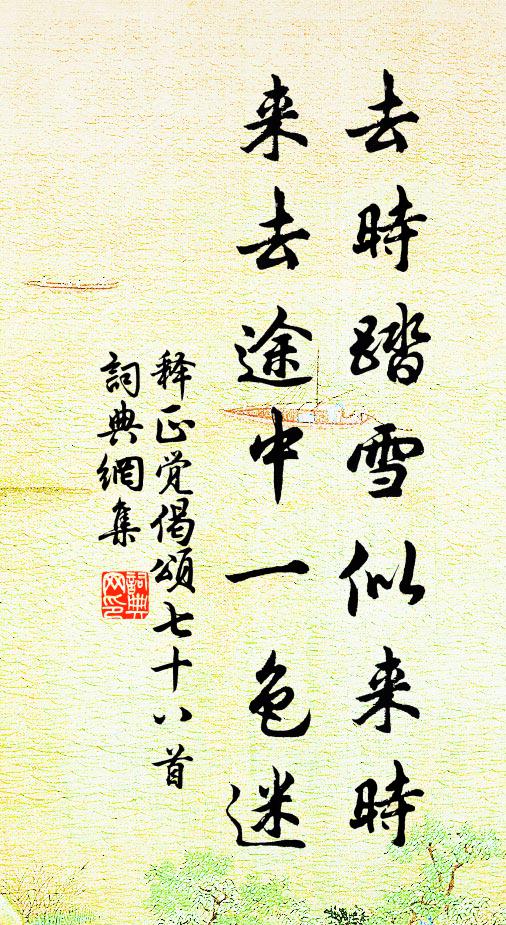 去時踏雪似来時
来去途中一色迷
释正覚偈頌七十八首
詞典網集
詞典
网印